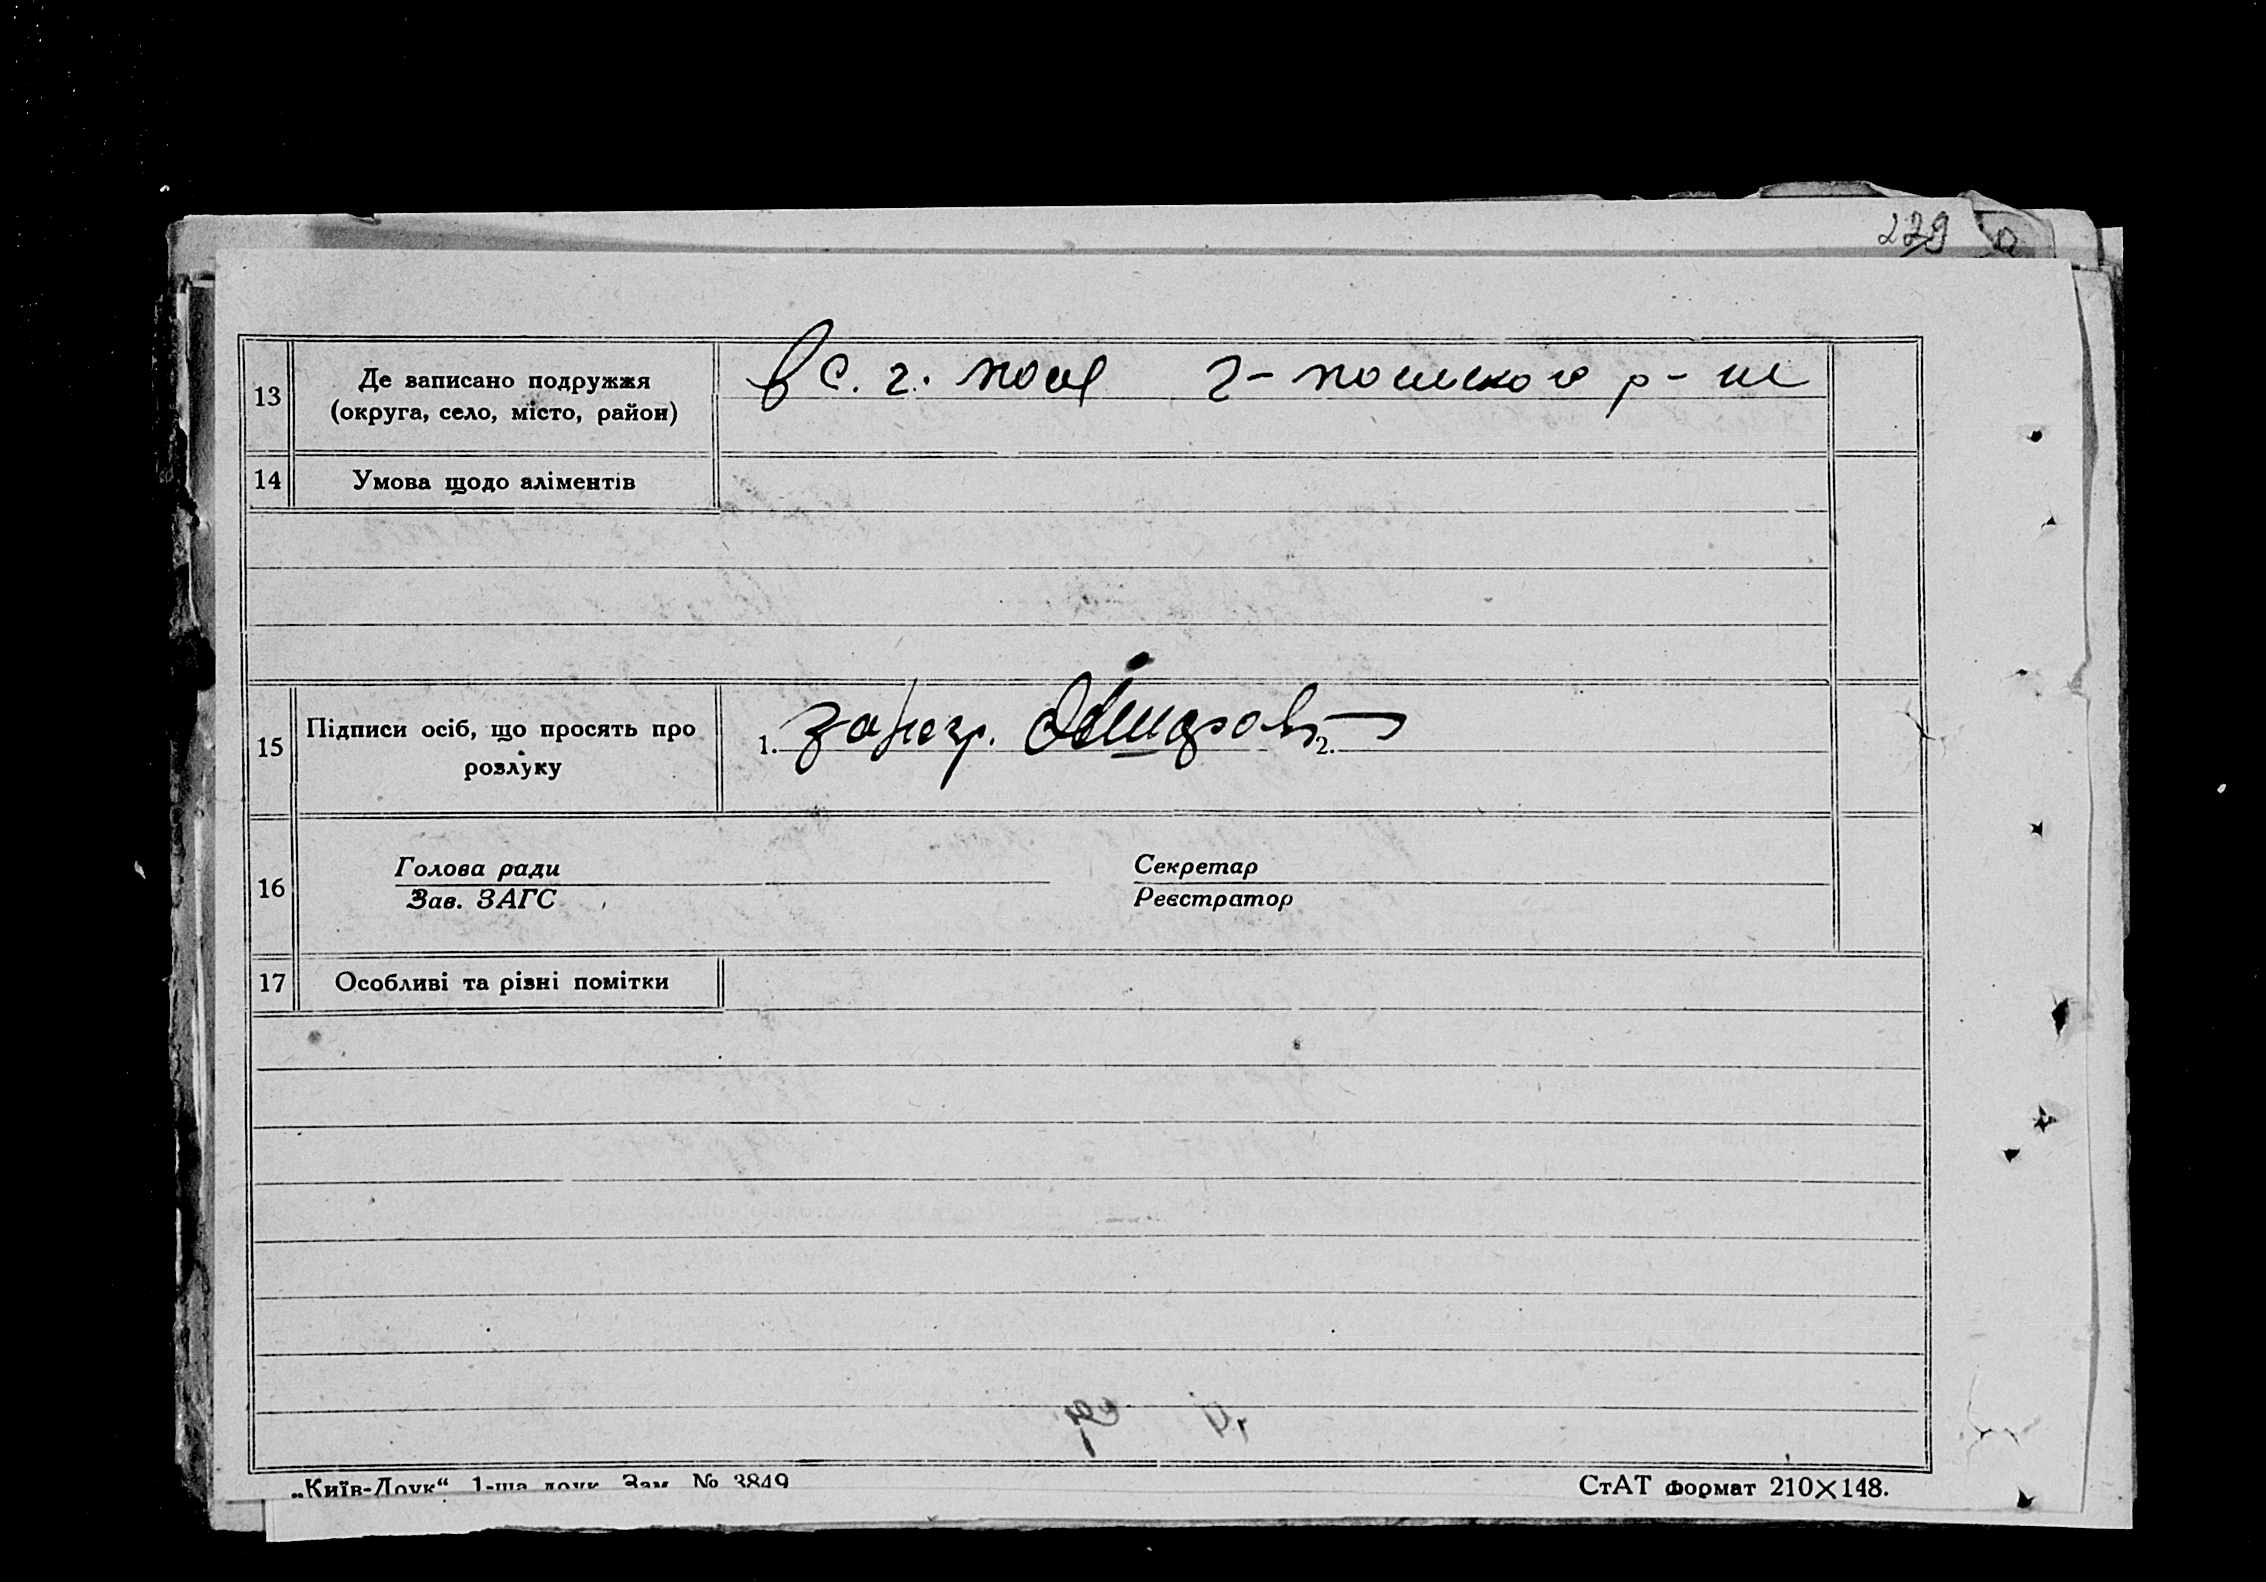 229
13
Де записано подружжя
(округа, село, місто, район)
в с. г. поля г- польского р- на
14
Умова щодо аліментів
15
Підписи осіб, що просять про
розлуку
1.
2.
16
Голова ради
Зав. ЗАГС
Секретар
Реєстратор
17
Особливі та різні помітки
„Київ-Друк“ 1-ша друк. Зам. № 3849
СтАТ формат 210×148.